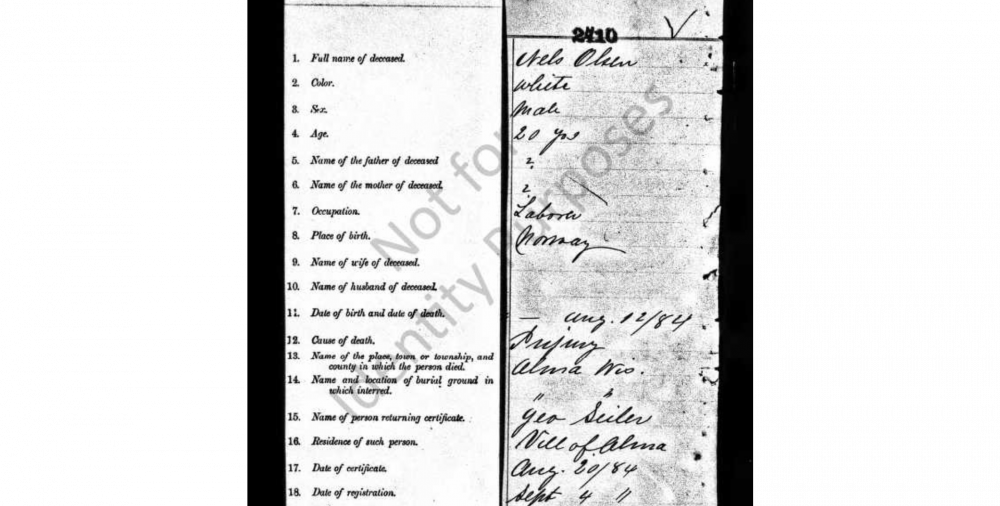 2410
1. Full name of deceased. Nels Olsen
2. Color. White
3. Sex. Male
4. Age. 20 yrs
5. Name of the father of deceased ?
6. Name of the mother of deceased. ?
7. Occupation. Laborer
8. Place of birth. Norway
9. Name of wife of deceased.
10. Name of husband of deceased.
11. Date of birth and date of death. — Aug. 12/84
12. Cause of death. Injury
13. Name of the place, town or township, and
county in which the person died. Alma Wis.
14. Name and location of burial ground in
which interred. " "
15. Name of person returning certificate. Geo Seiler
16. Residence of such person. Vill of Alma
17. Date of certificate. Aug. 20/84
18. Date of registration. Sept 4 "
Not for
Identity Purposes